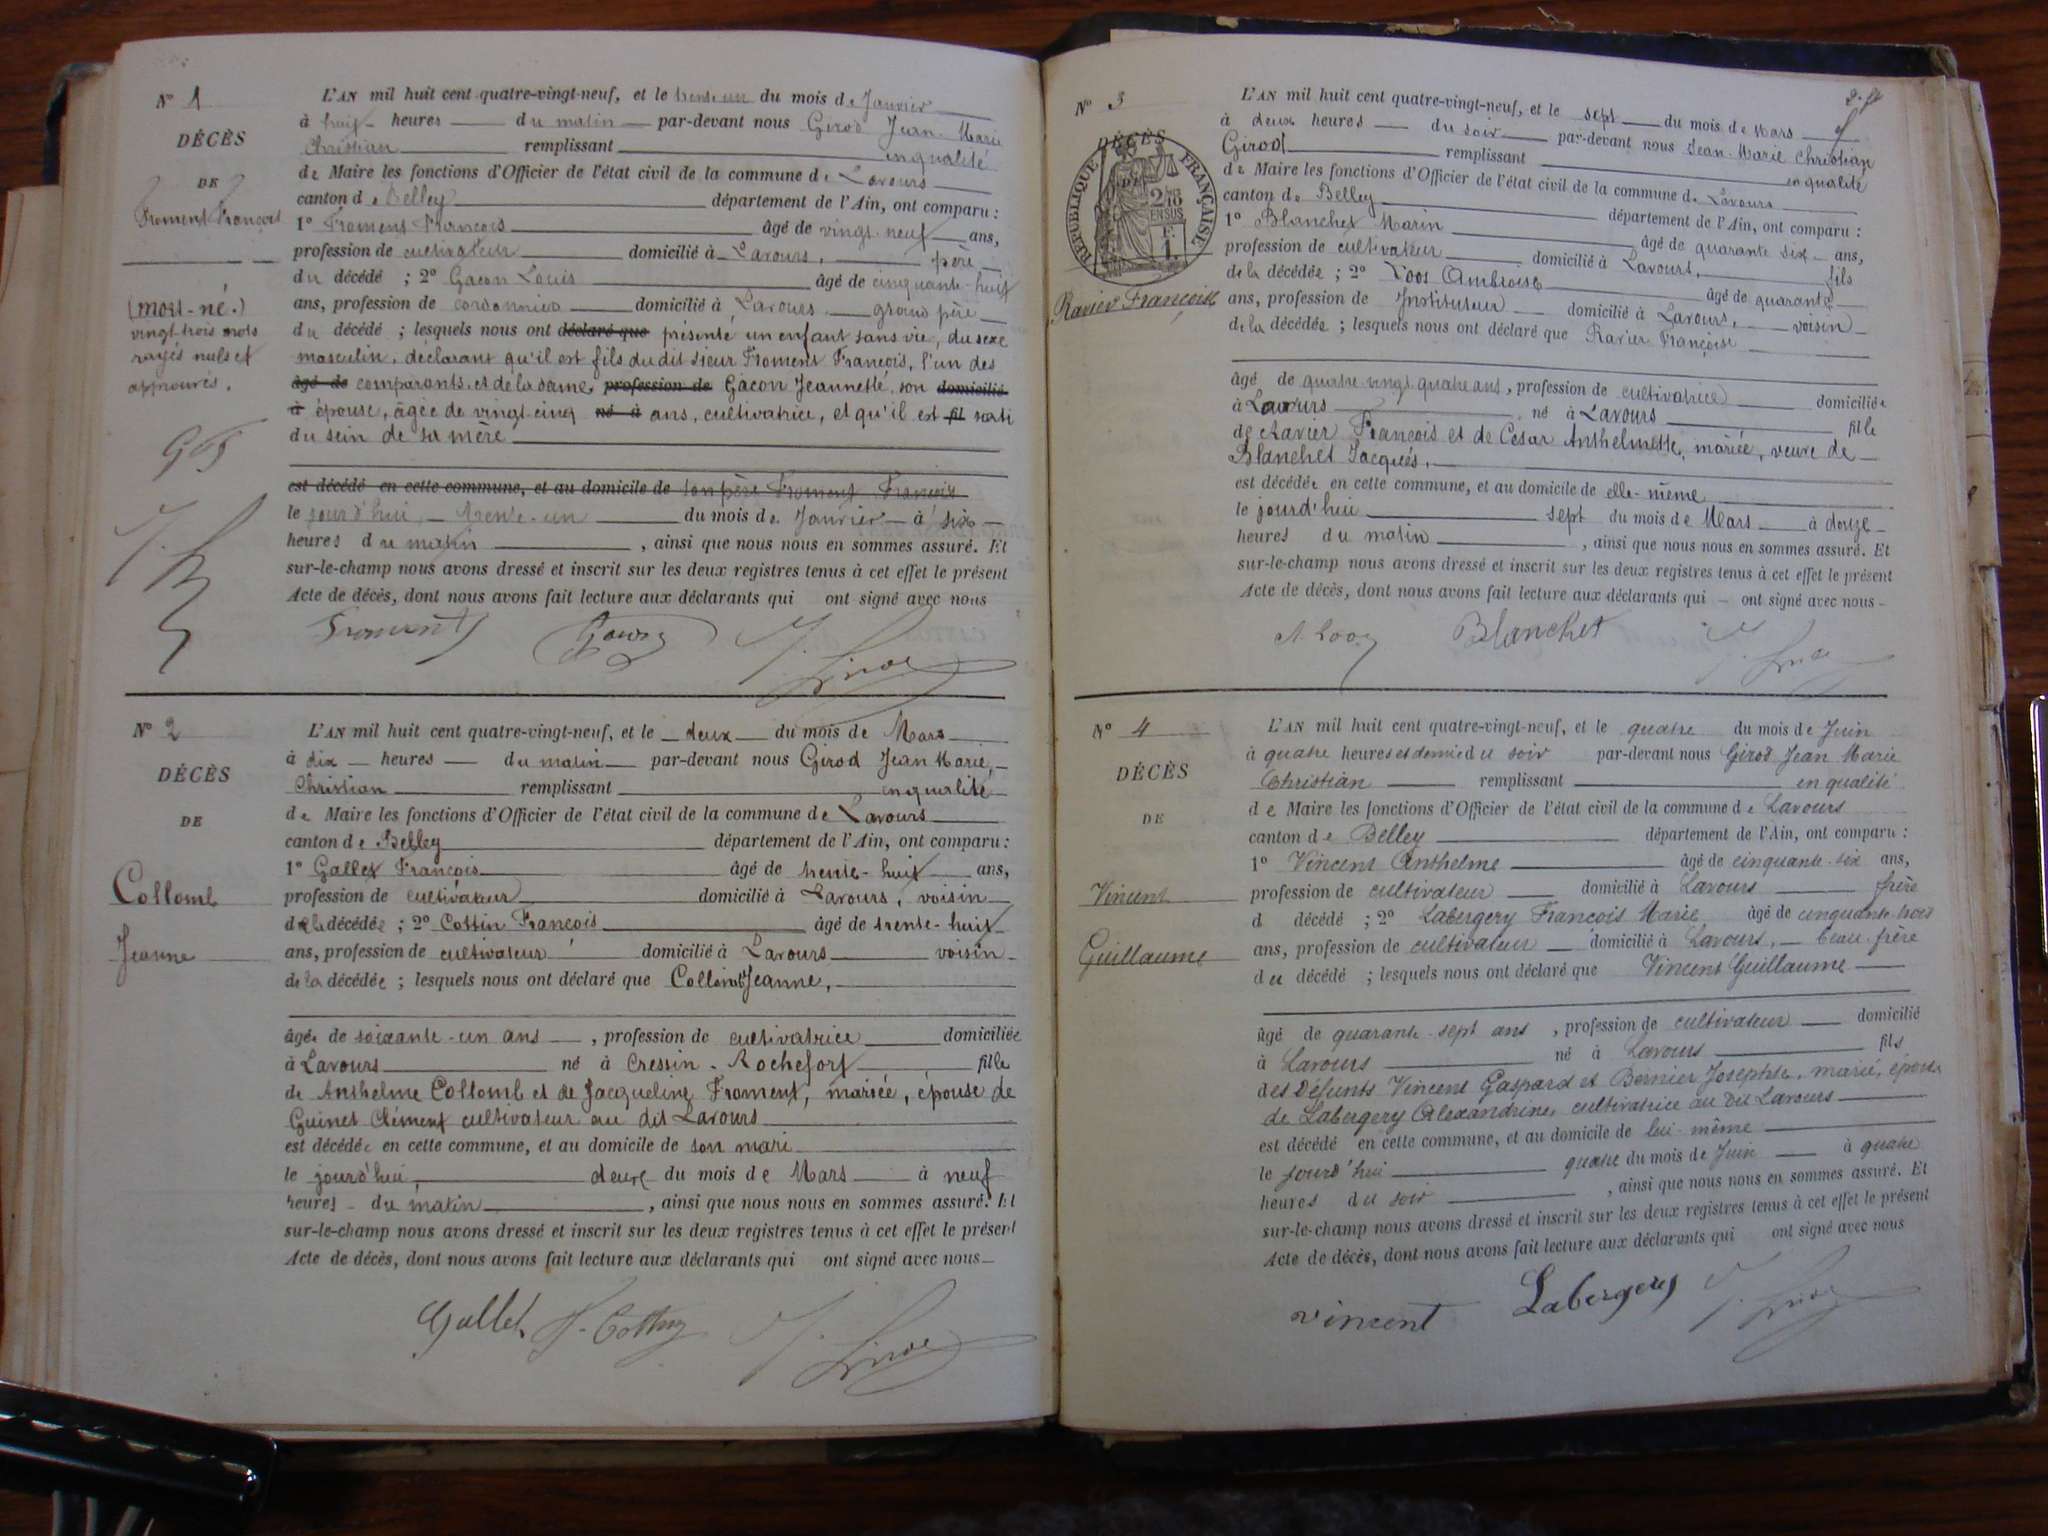 Nº 1
DÉCÈS
DE
Froment François
(mort-né.)
vingt-trois mots
rayés nuls et
approuvés.
L'AN mil huit cent quatre-vingt-neuf, et le trente un du mois de Janvier
à huit heures du matin par-devant nous Girod Jean Marie
Christian remplissant en qualité
de Maire les fonctions d'Officier de l'état civil de la commune de Lavours
canton de Belley département de l'Ain, ont comparu :
1º Froment François âgé de vingt-neuf ans,
profession de cultivateur domicilié à Lavours, père
du décédé ; 2º Gacon Louis âgé de cinquante-huit
ans, profession de cordonnier domicilié à Lavours grand père
du décédé ; lesquels nous ont déclaré que présenté un enfant sans vie, du sexe
masculin, déclarant qu'il est fils du dit sieur Froment François, l'un des
âgé de comparants et de la dame, profession de Gacon Jeannette son domicilié
à épouse, âgée de vingt cinq né à ans, cultivatrice, et qu'il est fil sorti
du sein de sa mère
est décédé en cette commune, et au domicile de son père Froment François
le jourd'hui, trente-un du mois de Janvier à six
heures du matin , ainsi que nous nous en sommes assuré. Et
sur-le-champ nous avons dressé et inscrit sur les deux registres tenus à cet effet le présent
Acte de décès, dont nous avons fait lecture aux déclarants qui ont signé avec nous
Froment J. Girod
Nº 2
DÉCÈS
DE
Collomb
Jeanne
L'AN mil huit cent quatre-vingt-neuf, et le deux du mois de Mars
à dix heures du matin par-devant nous Girod Jean Marie,
Christian remplissant en qualité
de Maire les fonctions d'Officier de l'état civil de la commune de Lavours
canton de Belley département de l'Ain, ont comparu :
1º Gallet François âgé de trente-huit ans,
profession de cultivateur domicilié à Lavours, voisin
de la décédée ; 2º Cottin François âgé de trente-huit
ans, profession de cultivateur domicilié à Lavours voisin
de la décédée ; lesquels nous ont déclaré que Collomb Jeanne,
âgée de soixante-un ans , profession de cultivatrice domiciliée
à Lavours né à Cressin-Rochefort fille
de Anthelme Collomb et de Jacqueline Froment, mariée, épouse de
Guinet Clément cultivateur au dit Lavours
est décédée en cette commune, et au domicile de son mari
le jourd'hui, deux du mois de Mars à neuf
heures du matin , ainsi que nous nous en sommes assuré. Et
sur-le-champ nous avons dressé et inscrit sur les deux registres tenus à cet effet le présent
Acte de décès, dont nous avons fait lecture aux déclarants qui ont signé avec nous
Gallet F. Cottin J. Girod
Nº 3
DÉCÈS
RÉPUBLIQUE FRANÇAISE
2/10
EN SUS
Ravier Françoise
L'AN mil huit cent quatre-vingt-neuf, et le sept du mois de Mars
à deux heures du soir par-devant nous Jean-Marie Christian
Girod remplissant en qualité
de Maire les fonctions d'Officier de l'état civil de la commune de Lavours
canton de Belley département de l'Ain, ont comparu :
1º Blanchet Marin âgé de quarante six ans,
profession de cultivateur domicilié à Lavours, fils
de la décédée ; 2º Loos Ambroise âgé de quarante
ans, profession de Instituteur domicilié à Lavours, voisin
de la décédée ; lesquels nous ont déclaré que Ravier Françoise
âgé de quatre-vingt quatre ans, profession de cultivatrice domiciliée
à Lavours né à Lavours fille
de Ravier François et de César Anthelmette, mariée, veuve de
Blanchet Jacques,
est décédée en cette commune, et au domicile de elle-même
le jourd'hui sept du mois de Mars à douze
heures du matin , ainsi que nous nous en sommes assuré. Et
sur-le-champ nous avons dressé et inscrit sur les deux registres tenus à cet effet le présent
Acte de décès, dont nous avons fait lecture aux déclarants qui ont signé avec nous
A. Loos Blanchet J. Girod
Nº 4
DÉCÈS
DE
Vincent
Guillaume
L'AN mil huit cent quatre-vingt-neuf, et le quatre du mois de Juin
à quatre heures et demie du soir par-devant nous Girod Jean Marie
Christian remplissant en qualité
de Maire les fonctions d'Officier de l'état civil de la commune de Lavours
canton de Belley département de l'Ain, ont comparu :
1º Vincent Anthelme âgé de cinquante-six ans,
profession de cultivateur domicilié à Lavours frère
d décédé ; 2º Labergery François Marie âgé de cinquante-trois
ans, profession de cultivateur domicilié à Lavours, beau-frère
du décédé ; lesquels nous ont déclaré que Vincent Guillaume
âgé de quarante-sept ans , profession de cultivateur domicilié
à Lavours né à Lavours fils
des Défunts Vincent Gaspard et Bernier Josephte, marié, époux
de Labergery Alexandrine, cultivatrice au dit Lavours
est décédé en cette commune, et au domicile de lui-même
le jourd'hui quatre du mois de Juin à quatre
heures du soir , ainsi que nous nous en sommes assuré. Et
sur-le-champ nous avons dressé et inscrit sur les deux registres tenus à cet effet le présent
Acte de décès, dont nous avons fait lecture aux déclarants qui ont signé avec nous
Vincent Labergery J. Girod